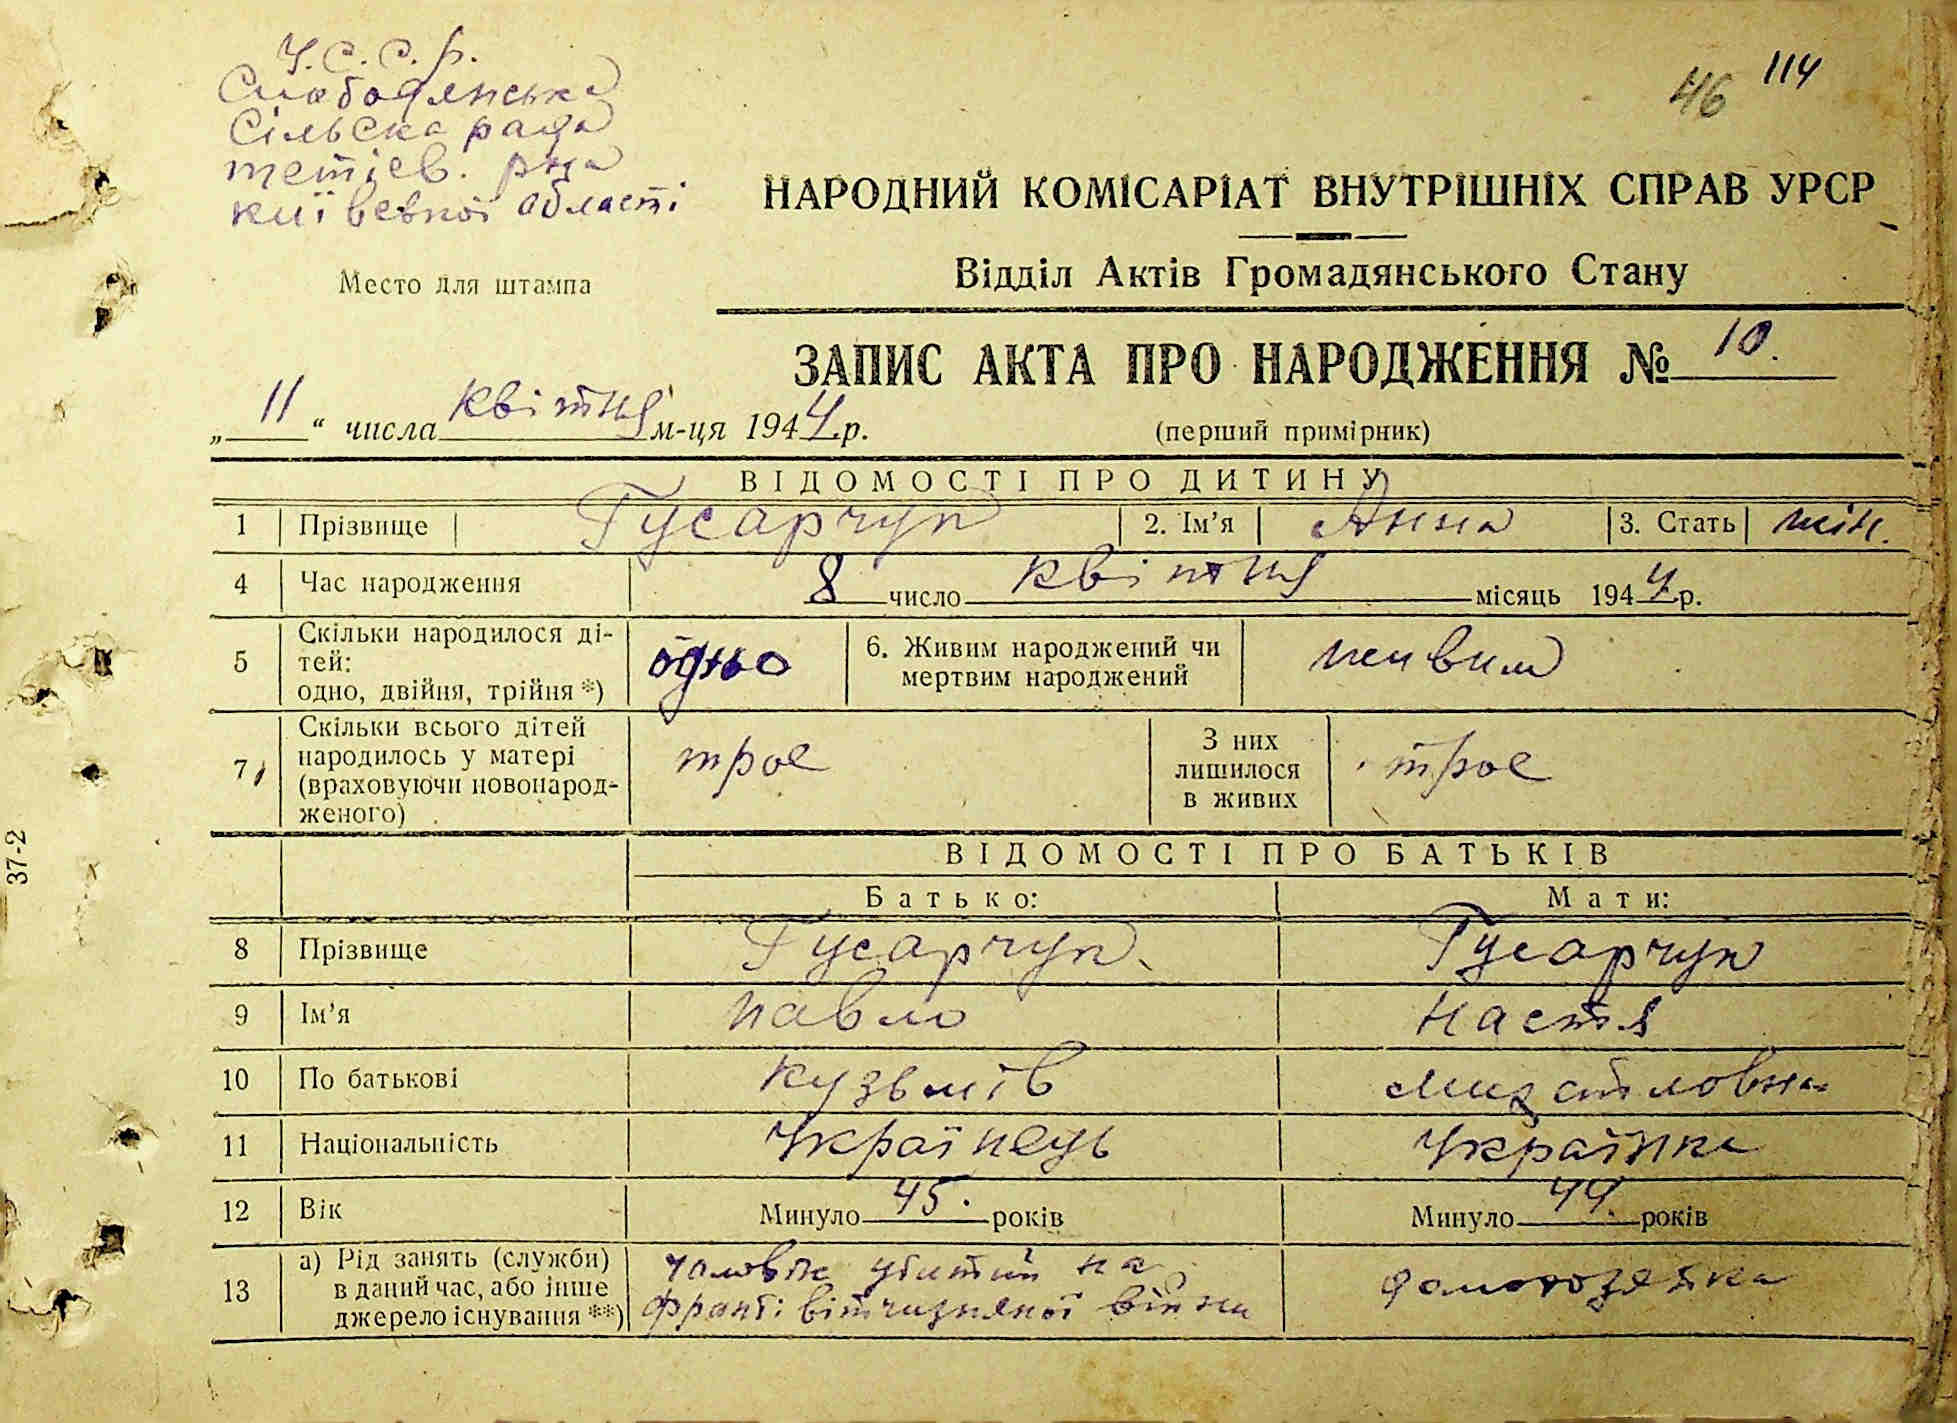 У.С.С.Р.
Слободянська
Сільска рада
тетіев. рна
київської області
46 114
НАРОДНИЙ КОМІСАРІАТ ВНУТРІШНІХ СПРАВ УРСР
Відділ Актів Громадянського Стану
Место для штампа
ЗАПИС АКТА ПРО НАРОДЖЕННЯ № 10.
„ 11 “ числа квітня м-ця 1944 р.
(перший примірник)
ВІДОМОСТІ ПРО ДИТИНУ
1 Прізвище Гусарчук 2. Ім’я Анна 3. Стать жін.
4 Час народження 8 число квітня місяць 1944 р.
5 Скільки народилося ді-
тей:
одно, двійня, трійня *) одно 6. Живим народжений чи
мертвим народжений живим
7 Скільки всього дітей
народилось у матері
(враховуючи новонарод-
женого) трое З них
лишилося
в живих трое
37-2
ВІДОМОСТІ ПРО БАТЬКІВ
Батько: Мати:
8 Прізвище Гусарчук Гусарчук
9 Ім’я Павло Настя
10 По батькові Кузьмів
11 Національність Українець Українка
12 Вік Минуло 45 років Минуло 44 років
13 а) Рід занять (служби)
в даний час, або інше
джерело існування **) чоловік убитий на
фронті вітчизняної війни домохозяйка